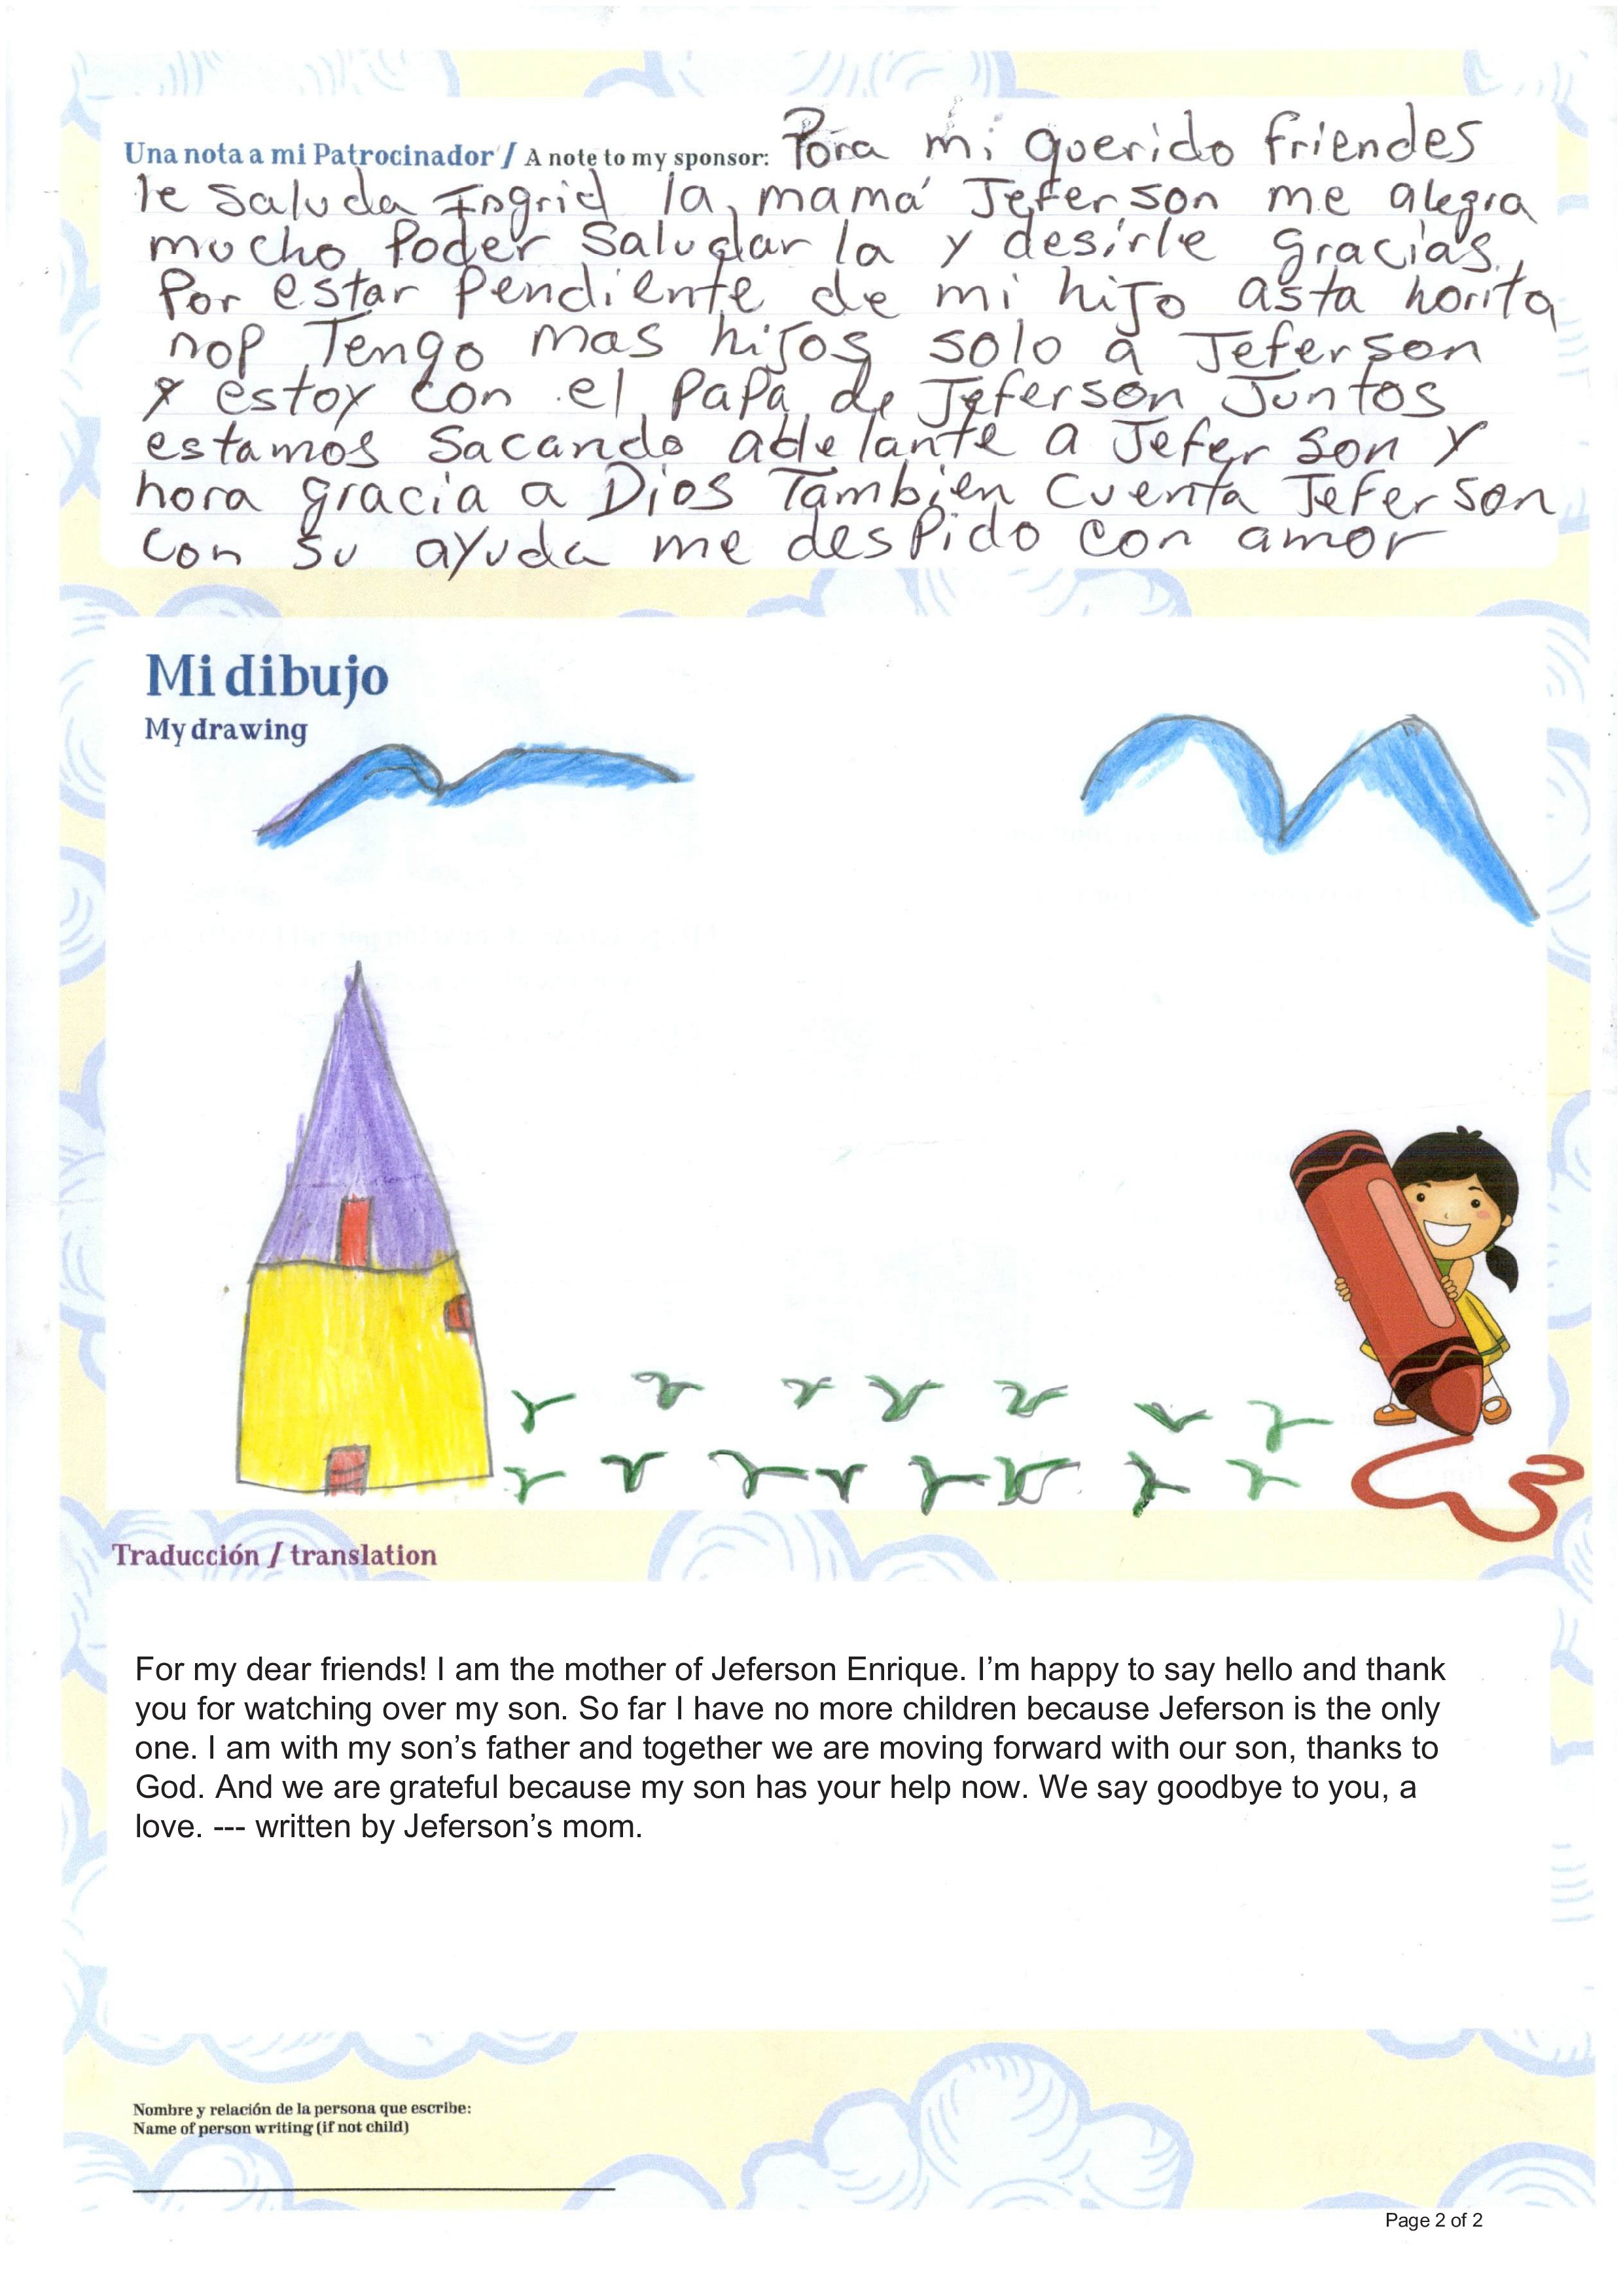 Una nota a mi Patrocinador / A note to my sponsor: Para mi querido friendes
le saluda Ingrid la mamá Jeferson me alegra
mucho poder saludarla y desirle gracias
por estar pendiente de mi hijo asta horita
nop Tengo mas hijos solo a Jeferson
y estoy con el papa de Jeferson Juntos
estamos sacando adelante a Jeferson y
hora gracia a Dios Tambien Cuenta Jeferson
con su ayuda me despido con amor
Mi dibujo
My drawing
Traducción / translation
For my dear friends! I am the mother of Jeferson Enrique. I’m happy to say hello and thank
you for watching over my son. So far I have no more children because Jeferson is the only
one. I am with my son’s father and together we are moving forward with our son, thanks to
God. And we are grateful because my son has your help now. We say goodbye to you, a
love. --- written by Jeferson’s mom.
Nombre y relación de la persona que escribe:
Name of person writing (if not child)
Page 2 of 2